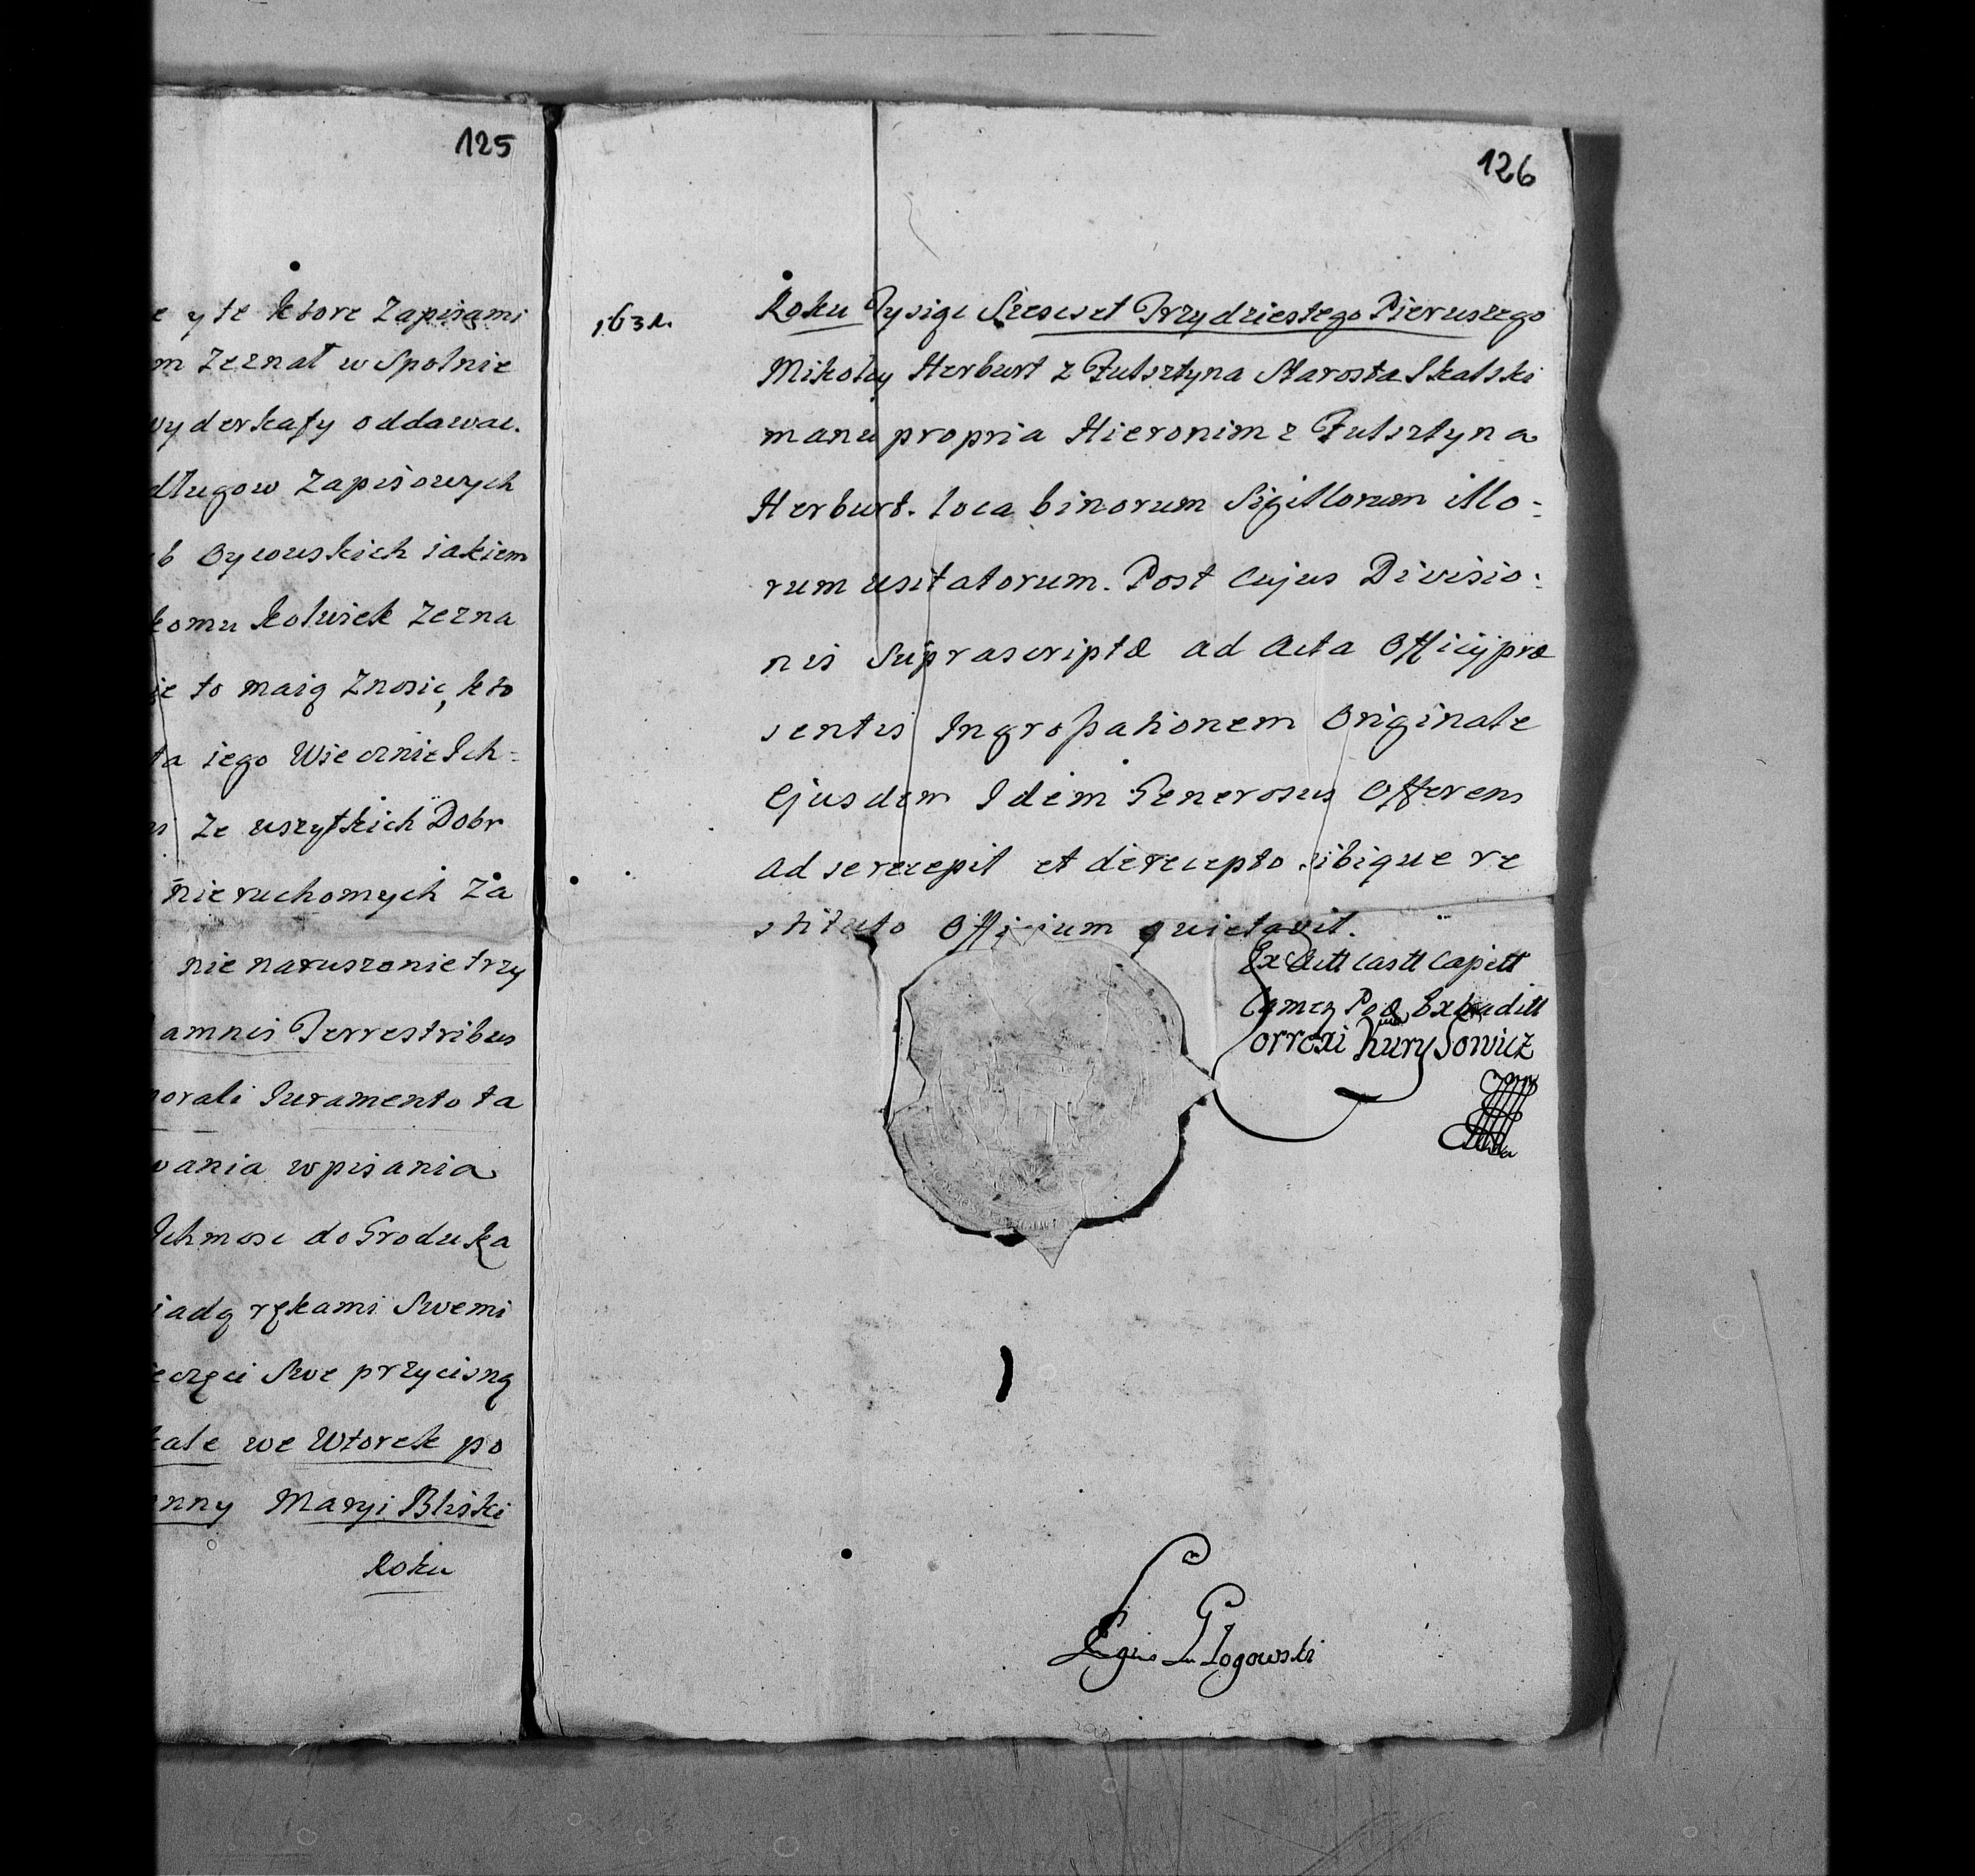 125
e y te ktore Zapisami
m Zeznał w Spolnie
wyderkafy oddawac.
długow Zapisowych
b Oycowskich iakiem
komu kolwiek Zezna
ie to maią Znosic, kto
ta iego Wiecznie Ich=
Ze wszytkich Dobr
nieruchomych Za
nienaruszonie trzy
amnis Terrestribus
porali Iuramento ta
wania wpisania
Ichmosc do Grodu Ka
iadą rękami Swemi
ieczęci Swe przycisną
kale we Wtorek po
anny Maryi Bliski
Roku
126
1631.
Roku Tysiąc Szescset Trzydziestego Pierwszego
Mikołay Herburt z Fulsztyna Starosta Skalski
manu propria Hieronim z Fulsztyna
Herburt. loca binorum Sigillorum illo=
rum usitatorum. Post Cujus Divisio=
nis Suprascriptæ ad Acta Officij præ
sentis Ingrossationem Originale
Ejusdem Idem Generosus Offerens
ad se recepit et de recepto sibique re
stituto Officium quietavit.
Ex Actt Castt Capitt
Camen Pod Extraditt
orrexi Kurysowicz
Legit Głogowski